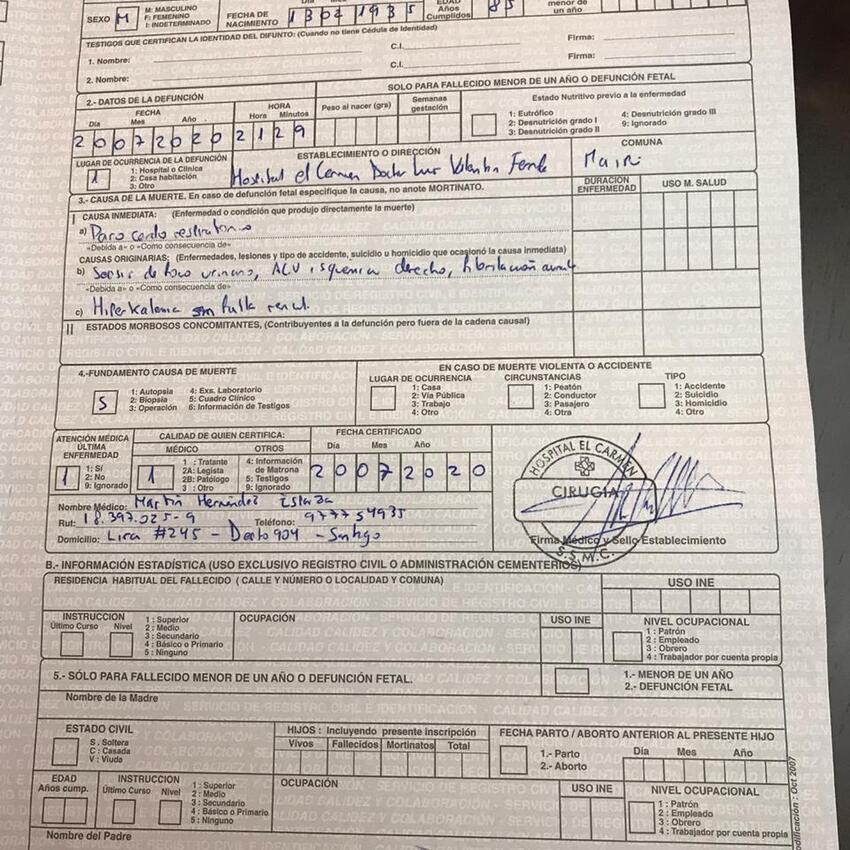 SEXO M M: MASCULINO F: FEMENINO I: INDETERMINADO FECHA DE NACIMIENTO 13021935 EDAD Años Cumplidos 85 menor de un año
TESTIGOS QUE CERTIFICAN LA IDENTIDAD DEL DIFUNTO: (Cuando no tiene Cédula de Identidad)
1. Nombre: C.I. Firma:
2. Nombre: C.I. Firma:
SOLO PARA FALLECIDO MENOR DE UN AÑO O DEFUNCIÓN FETAL
2.- DATOS DE LA DEFUNCIÓN
FECHA HORA Peso al nacer (grs) Semanas gestación Estado Nutritivo previo a la enfermedad
Día Mes Año Hora Minutos
20072020 2129
1: Eutrófico 4: Desnutrición grado III
2: Desnutrición grado I 9: Ignorado
3: Desnutrición grado II
LUGAR DE OCURRENCIA DE LA DEFUNCIÓN ESTABLECIMIENTO O DIRECCIÓN COMUNA
1 1: Hospital o Clínica 2: Casa habitación 3: Otro
Hospital el Carmen Doctor Luis Valentin
3.- CAUSA DE LA MUERTE. En caso de defunción fetal especifique la causa, no anote MORTINATO.
DURACIÓN ENFERMEDAD USO M. SALUD
I CAUSA INMEDIATA: (Enfermedad o condición que produjo directamente la muerte)
a) Paro cardio respiratorio
«Debida a» o «Como consecuencia de»
CAUSAS ORIGINARIAS: (Enfermedades, lesiones y tipo de accidente, suicidio u homicidio que ocasionó la causa inmediata)
b) Sepsis de foco urinario, ACV isquemico derecho, fibrilación
«Debida a» o «Como consecuencia de»
c) Hiperkalemia sin falla renal.
II ESTADOS MORBOSOS CONCOMITANTES, (Contribuyentes a la defunción pero fuera de la cadena causal)
4.-FUNDAMENTO CAUSA DE MUERTE
5 1: Autopsia 4: Exs. Laboratorio
2: Biopsia 5: Cuadro Clínico
3: Operación 6: Información de Testigos
EN CASO DE MUERTE VIOLENTA O ACCIDENTE
LUGAR DE OCURRENCIA CIRCUNSTANCIAS TIPO
1: Casa 1: Peatón 1: Accidente
2: Vía Pública 2: Conductor 2: Suicidio
3: Trabajo 3: Pasajero 3: Homicidio
4: Otro 4: Otra 4: Otro
ATENCIÓN MÉDICA ÚLTIMA ENFERMEDAD
1 1: Sí 2: No 9: Ignorado
CALIDAD DE QUIEN CERTIFICA:
MÉDICO OTROS
1 1 : Tratante 4: Información de Matrona
2A: Legista 5: Testigos
2B: Patólogo 9: Ignorano
3 : Otro
FECHA CERTIFICADO
Día Mes Año
20072020
Nombre Médico: Martín Hernández
Rut: 18.397.025-9 Teléfono: 977754935
Domicilio: Lira #245 - Depto 904 - Santiago
HOSPITAL EL CARMEN
CIRUGIA
S.S.M.C.
Firma Médico y Sello Establecimiento
B.- INFORMACIÓN ESTADÍSTICA (USO EXCLUSIVO REGISTRO CIVIL O ADMINISTRACIÓN CEMENTERIOS)
RESIDENCIA HABITUAL DEL FALLECIDO ( CALLE Y NÚMERO O LOCALIDAD Y COMUNA) USO INE
INSTRUCCION
Último Curso Nivel
1 : Superior
2 : Medio
3 : Secundario
4 : Básico o Primario
5 : Ninguno
OCUPACIÓN USO INE
NIVEL OCUPACIONAL
1 : Patrón
2 : Empleado
3 : Obrero
4 : Trabajador por cuenta propia
5.- SÓLO PARA FALLECIDO MENOR DE UN AÑO O DEFUNCIÓN FETAL.
1.- MENOR DE UN AÑO
2.- DEFUNCIÓN FETAL
Nombre de la Madre
ESTADO CIVIL
S . Soltera
C : Casada
V : Viuda
HIJOS : Incluyendo presente inscripción
Vivos Fallecidos Mortinatos Total
FECHA PARTO / ABORTO ANTERIOR AL PRESENTE HIJO
1.- Parto Día Mes Año
2.- Aborto
EDAD Años cump.
INSTRUCCION
Último Curso Nivel
1 : Superior
2 : Medio
3 : Secundario
4 : Básico o Primario
5 : Ninguno
OCUPACIÓN USO INE
NIVEL OCUPACIONAL
1 : Patrón
2 : Empleado
3 : Obrero
4 : Trabajador por cuenta propia
Nombre del Padre
odificación : Oct 2007